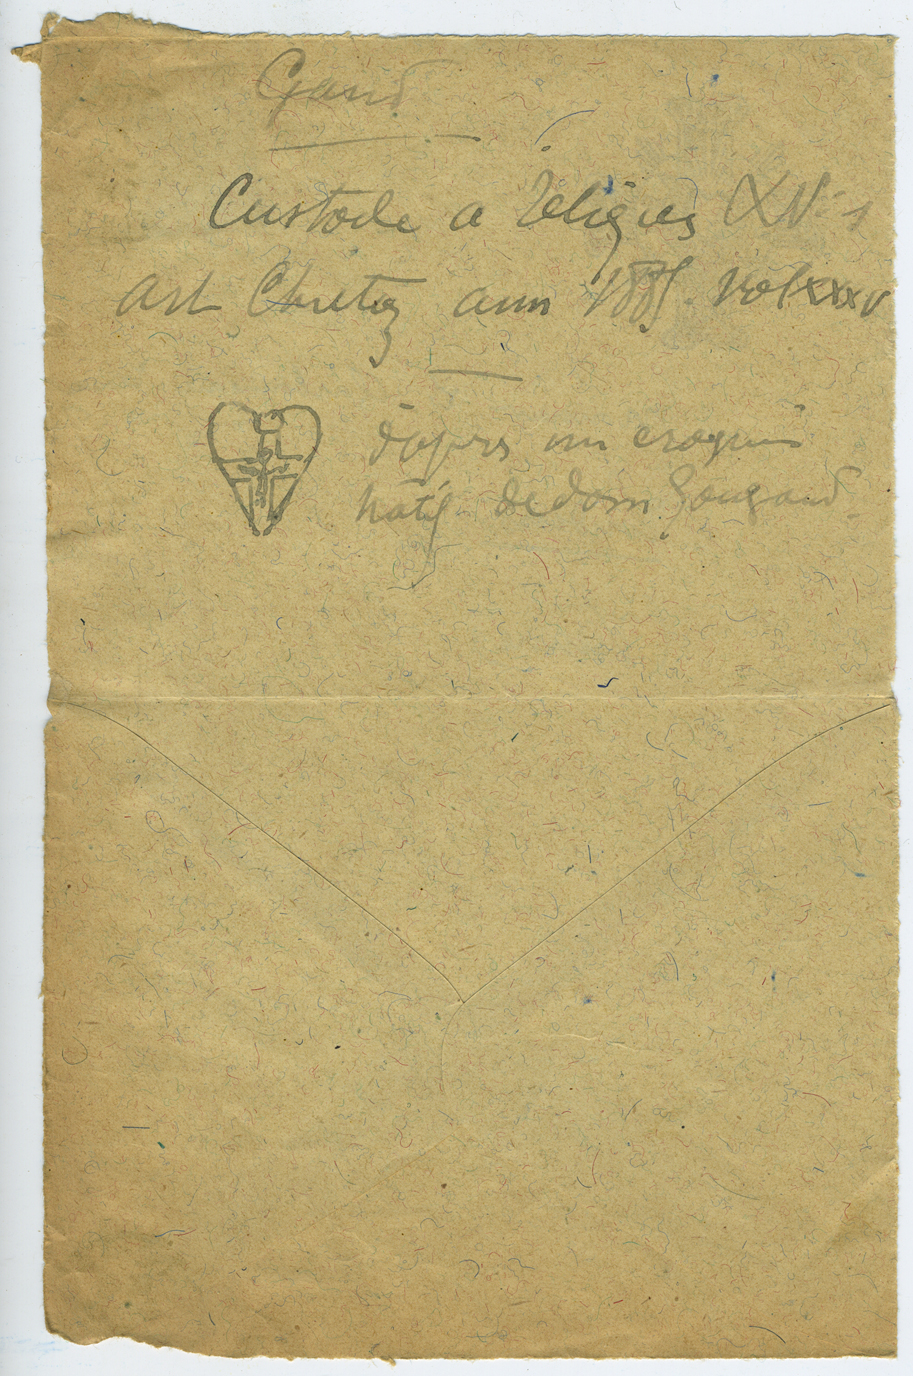 Gand
Custode a reliques XVe s
Art Chretien ann 1885 vol xxxv
d'après un croquis
hatif de dom Gougaud